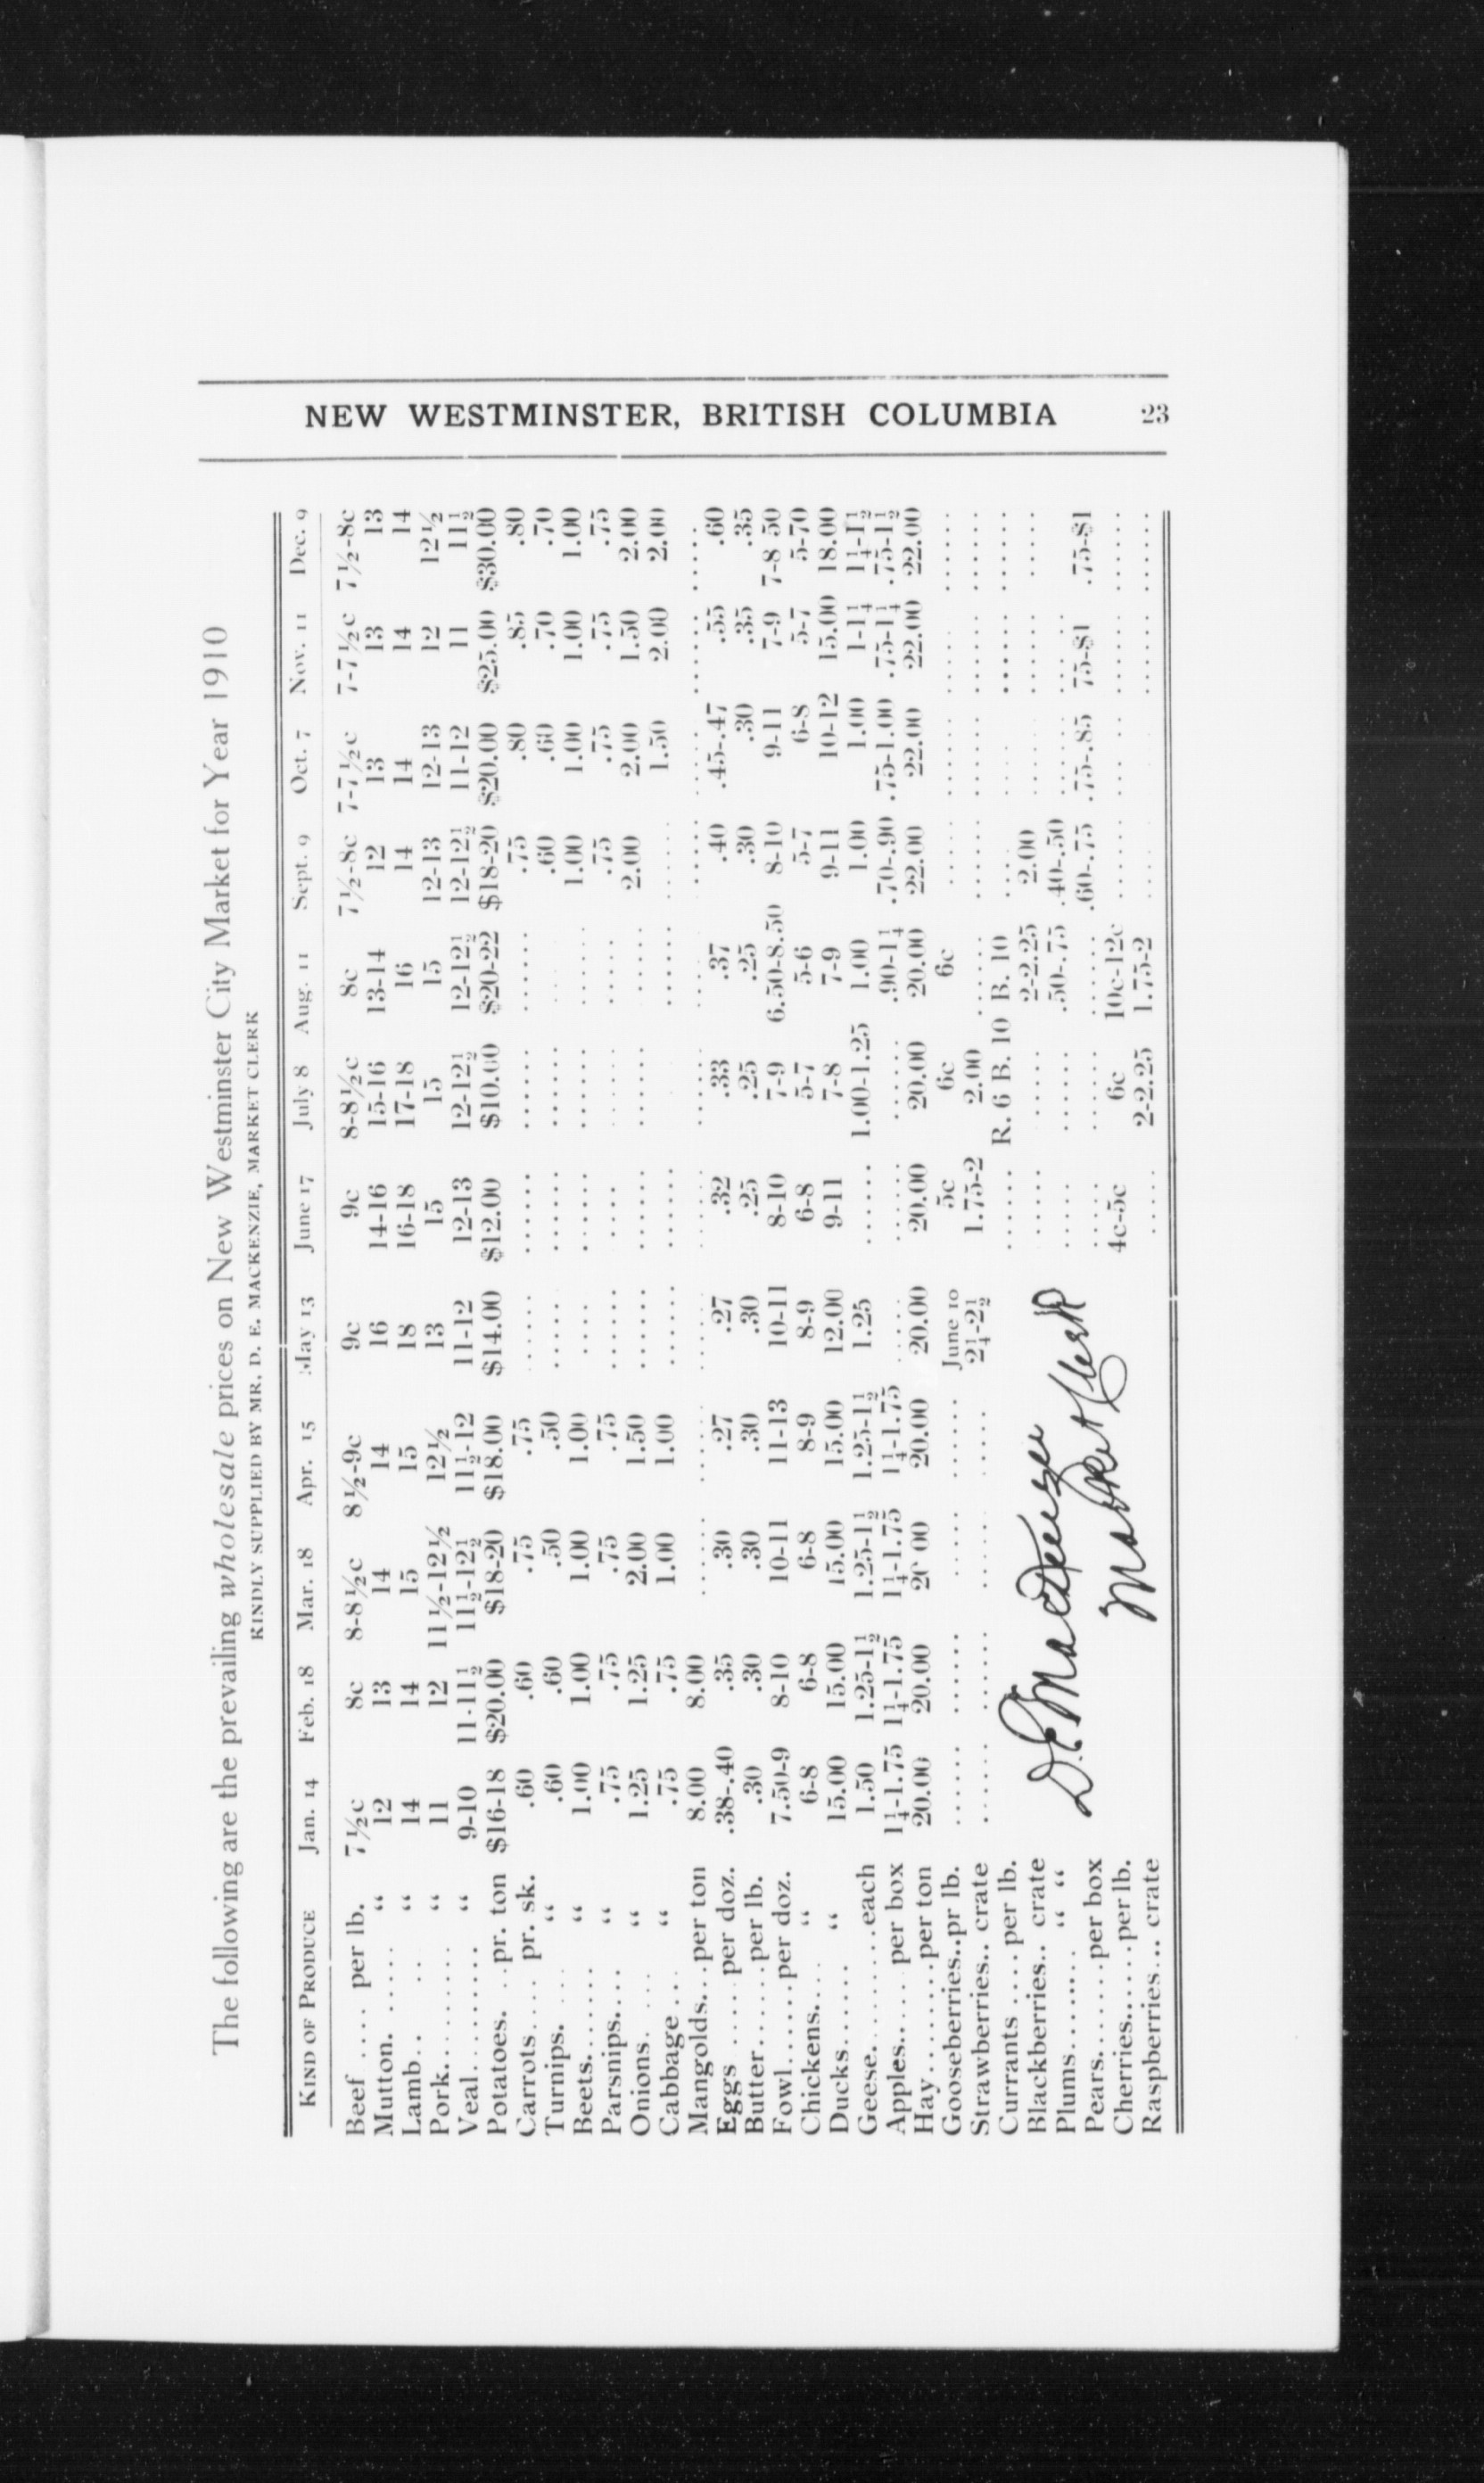 NEW WESTMINSTER, BRITISH COLUMBIA 23
The following are the prevailing wholesale prices on New Westminster City Market for Year 1910
KINDLY SUPPLIED BY MR. D. E. MACKENZIE, MARKET CLERK
KIND OF PRODUCE Jan. 14 Feb. 18 Mar. 18 Apr. 15 May 13 June 17 July 8 Aug. 11 Sept. 9 Oct. 7 Nov. 11 Dec. 9
Beef .... per lb. 7½c 8c 8-8½c 8½-9c 9c 9c 8-8½c 8c 7½-8c 7-7½c 7-7½c 7½-8c
Mutton. .... “ 12 13 14 14 16 14-16 15-16 13-14 12 13 13 13
Lamb.. .. “ 14 14 15 15 18 16-18 17-18 16 14 14 14 14
Pork....... “ 11 12 11½-12½ 12½ 13 15 15 15 12-13 12-13 12 12½
Veal........ “ 9-10 11-11½ 11½-12½ 11½-12 11-12 12-13 12-12½ 12-12½ 12-12½ 11-12 11 11½
Potatoes. ..pr. ton $16-18 $20.00 $18-20 $18.00 $14.00 $12.00 $10.00 $20-22 $18-20 $20.00 $25.00 $30.00
Carrots.... pr. sk. .60 .60 .75 .75 ..... ...... ...... ...... .75 .80 .85 .80
Turnips. ... “ .60 .60 .50 .50 ...... ...... ...... ... .60 .60 .70 .70
Beets...... “ 1.00 1.00 1.00 1.00 .... ...... ...... ..... 1.00 1.00 1.00 1.00
Parsnips.... “ .75 .75 .75 .75 ...... ..... ..... ..... .75 .75 .75 .75
Onions. ... “ 1.25 1.25 2.00 1.50 ...... ...... ...... ..... 2.00 2.00 1.50 2.00
Cabbage ... “ .75 .75 1.00 1.00 ...... ...... ... ...... ...... 1.50 2.00 2.00
Mangolds...per ton 8.00 8.00 ...... ...... ..... ..... ...... .... ...... ...... ...... ......
Eggs ..... per doz. .38-.40 .35 .30 .27 .27 .32 .33 .37 .40 .45-.47 .55 .60
Butter......per lb. .30 .30 .30 .30 .30 .25 .25 .25 .30 .30 .35 .35
Fowl......per doz. 7.50-9 8-10 10-11 11-13 10-11 8-10 7-9 6.50-8.50 8-10 9-11 7-9 7-8 50
Chickens.... “ 6-8 6-8 6-8 8-9 8-9 6-8 5-7 5-6 5-7 6-8 5-7 5-70
Ducks...... “ 15.00 15.00 15.00 15.00 12.00 9-11 7-8 7-9 9-11 10-12 15.00 18.00
Geese.........each 1.50 1.25-1½ 1.25-1½ 1.25-1½ 1.25 ...... 1.00-1.25 1.00 1.00 1.00 1-1¼ 1¼-1½
Apples....... per box 1¼-1.75 1¼-1.75 1¼-1.75 1¼-1.75 .... ..... ..... .90-1¼ .70-.90 .75-1.00 .75-1¼ .75-1½
Hay........per ton 20.00 20.00 20 00 20.00 20.00 20.00 20.00 20.00 22.00 22.00 22.00 22.00
Gooseberries..pr lb. ...... ...... ..... ...... June 10 5c 6c 6c ..... ...... ..... ......
Strawberries.. crate ...... ...... ...... ..... 2¼-2½ 1.75-2 2.00 ..... ...... ...... ...... ......
Currants ....per lb. ...... R. 6 B. 10 B. 10 .... .... ...... ......
Blackberries.. crate ..... ..... 2-2.25 2.00 ..... ..... .....
Plums........ “ “ ..... ...... .50-.75 .40-.50 ...... ..... .....
Pears.......per box ..... ..... ...... .60-.75 .75-.85 75-$1 .75-$1
Cherries......per lb. 4c-5c 6c 10c-12c ...... ..... ...... ......
Raspberries... crate ..... 2-2.25 1.75-2 ..... ...... ...... ......
D. E. MacKenzie
Market Clerk